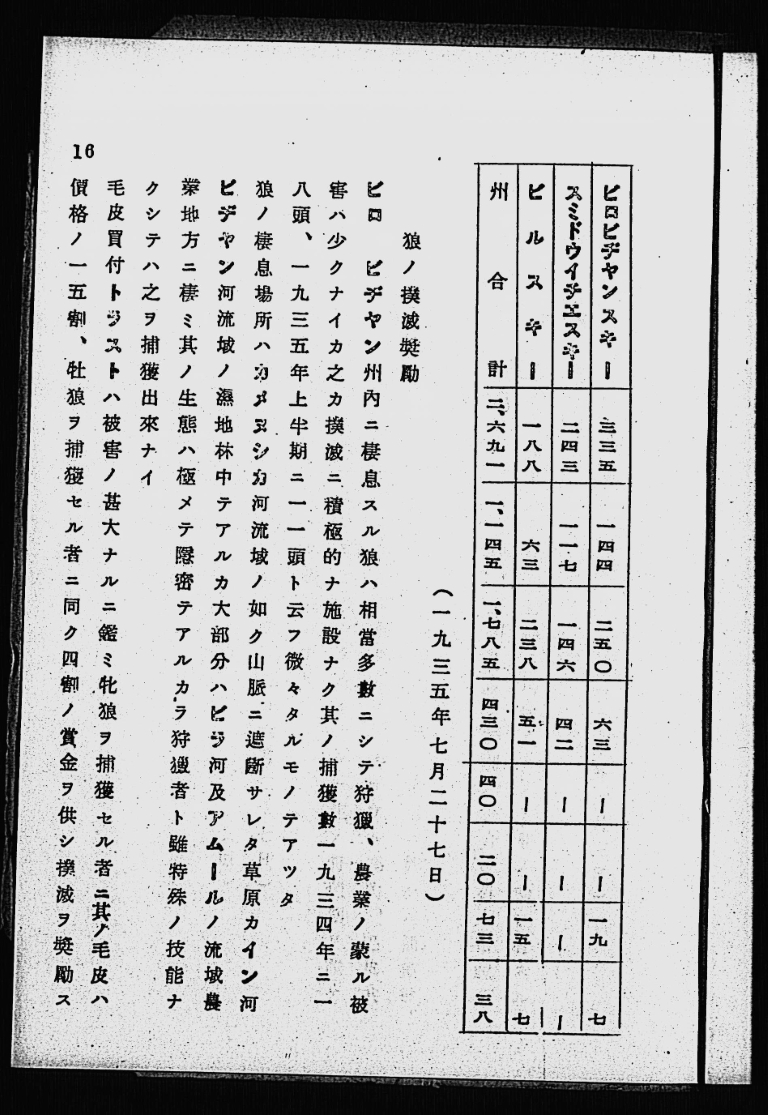 ビロビヂヤンスキー 三三五 一四四 二五〇 六三 ー ー 一九 七
スミドウイチエスキー 二四三 一一七 一四六 四二 ー ー ー ー
ビルスキー 一八八 六三 二三八 五一 ー ー 一五 七
州合計 二、六九一 一、一四五 一、七八五 四三〇 四〇 二〇 七三 三八
(一九三五年七月二十七日)
狼ノ撲滅奨勵
ビロ ビヂヤン州內ニ棲息スル狼ハ相當多數ニシテ狩獵、農業ノ蒙ル被
害ハ少クナイカ之カ撲滅ニ積極的ナ施設ナク其ノ捕獲數一九三四年ニ一
八頭、一九三五年上半期ニ一一頭ト云フ微々タルモノテアツタ
狼ノ棲息場所ハカメヌシカ河流域ノ如ク山脈ニ遮斷サレタ草原カイン河
ビヂヤン河流域ノ濕地林中テアルカ大部分ハビラ河及アムールノ流域農
業地方ニ棲ミ其ノ生態ハ極メテ隱密テアルカラ狩獵者ト雖特殊ノ技能ナ
クシテハ之ヲ捕獲出來ナイ
毛皮買付トラストハ被害ノ甚大ナルニ鑑ミ牝狼ヲ捕獲セル者ニ其ノ毛皮ハ
價格ノ一五割、牡狼ヲ捕獲セル者ニ同ク四割ノ賞金ヲ供シ撲滅ヲ奬勵ス
16